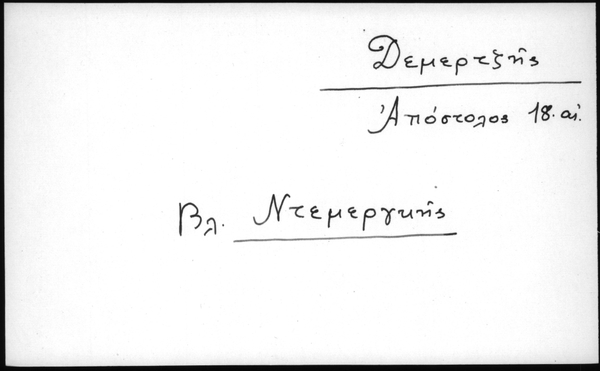 Δεμερτζῆς
Ἀπόστολος 18. αἰ.
Βλ. Ντεμεργκῆς